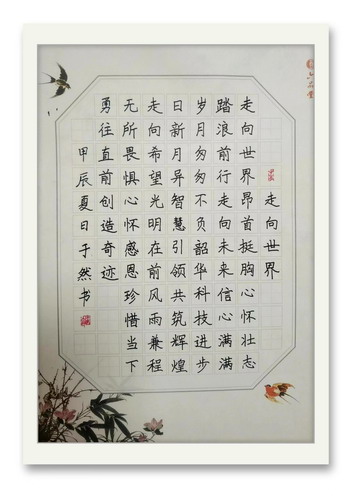 六品堂
走向世界
走向世界昂首挺胸心怀壮志
踏浪前行走向未来信心满满
岁月匆匆不负韶华科技进步
日新月异智慧引领共筑辉煌
走向希望光明在前风雨兼程
无所畏惧心怀感恩珍惜当下
勇往直前创造奇迹
甲辰夏日于然书